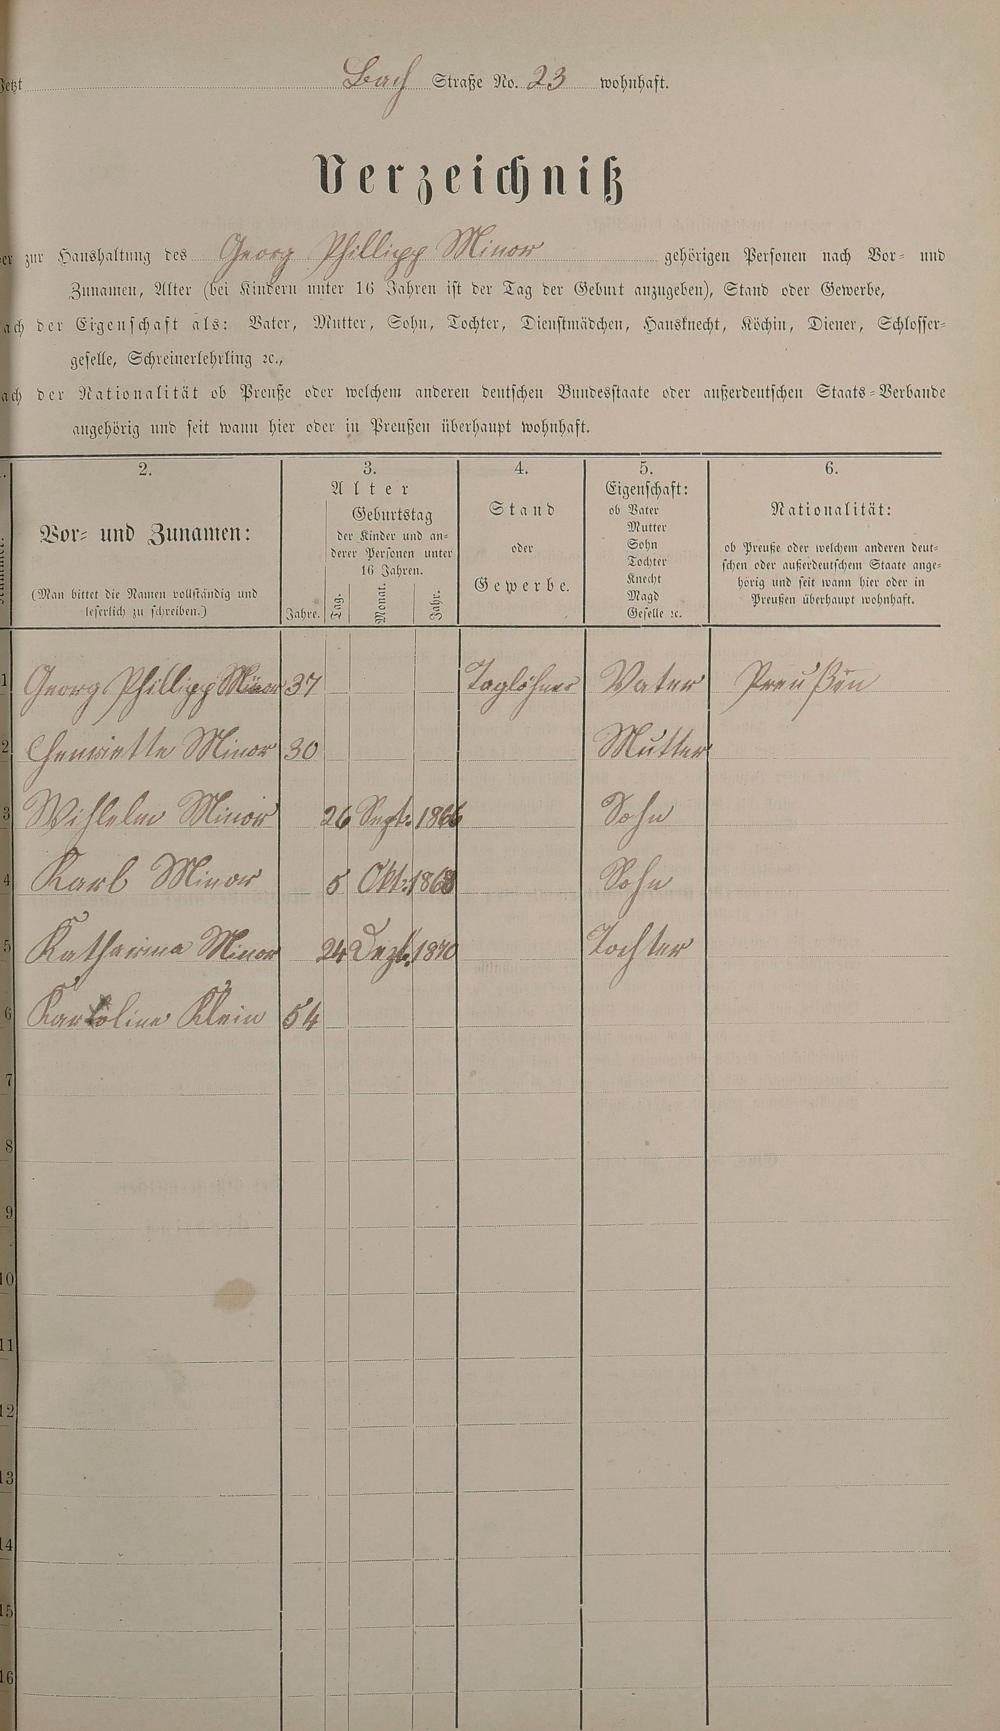 Jetzt Bach Straße No. 23 wohnhaft.
Verzeichniß
der zur Haushaltung des Georg Phillipp Minor gehörigen Personen nach Vor- und
Zunamen, Alter (bei Kindern unter 16 Jahren ist der Tag der Geburt anzugeben), Stand oder Gewerbe,
nach der Eigenschaft als: Vater, Mutter, Sohn, Tochter, Dienstmädchen, Hausknecht, Köchin, Diener, Schlosser-
geselle, Schreinerlehrling ꝛc.,
nach der Nationalität ob Preuße oder welchem anderen deutschen Bundesstaate oder außerdeutschen Staats-Verbande
angehörig und seit wann hier oder in Preußen überhaupt wohnhaft.
2.
Vor- und Zunamen:
(Man bittet die Namen vollständig und
leserlich zu schreiben.)
3.
Alter
Geburtstag
der Kinder und an-
derer Personen unter
16 Jahren.
Jahre. Tag. Monat. Jahr.
4.
Stand
oder
Gewerbe.
5.
Eigenschaft:
ob Vater
Mutter
Sohn
Tochter
Knecht
Magd
Geselle ꝛc.
6.
Nationalität:
ob Preuße oder welchem anderen deut-
schen oder außerdeutschem Staate ange-
hörig und seit wann hier oder in
Preußen überhaupt wohnhaft.
1 Georg Phillipp Minor 37 Taglöhner Vater Preußen
2 Henriette Minor 30 Mutter
3 Wilhelm Minor 26 Sept. 1866 Sohn
4 Karl Minor 5 Okt. 1868 Sohn
5 Katharina Minor 24 Dezb. 1870 Tochter
6 Karoline Klein 54
7
8
9
10
11
12
13
14
15
16